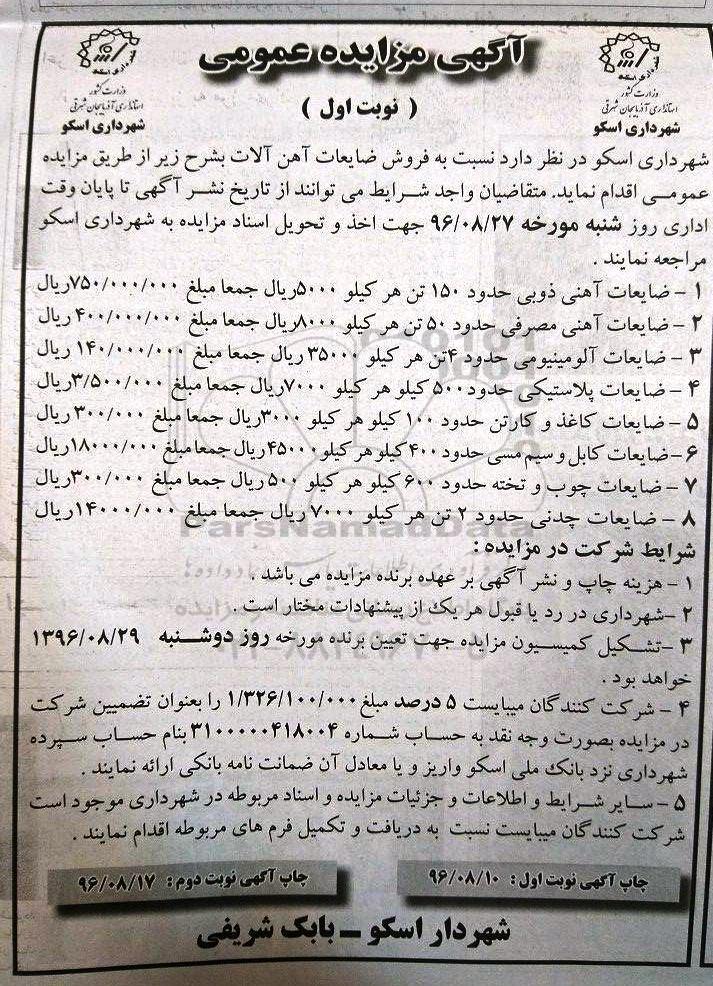 آگهی مزایده عمومی
( نوبت اول )
وزارت کشور
استانداری آذربایجان شرقی
شهرداری اسکو
وزارت کشور
استانداری آذربایجان شرقی
شهرداری اسکو
شهرداری اسکو در نظر دارد نسبت به فروش ضایعات آهن آلات بشرح زیر از طریق مزایده
عمومی اقدام نماید. متقاضیان واجد شرایط می توانند از تاریخ نشر آگهی تا پایان وقت
اداری روز شنبه مورخه ۹۶/۰۸/۲۷ جهت اخذ و تحویل اسناد مزایده به شهرداری اسکو
مراجعه نمایند .
۱ – ضایعات آهنی ذوبی حدود ۱۵۰ تن هر کیلو ۵۰۰۰ریال جمعا مبلغ ۷۵۰/۰۰۰/۰۰۰ریال
۲ – ضایعات آهنی مصرفی حدود ۵۰ تن هر کیلو ۸۰۰۰ریال جمعا مبلغ ۴۰۰/۰۰۰/۰۰۰ ریال
۳ – ضایعات آلومینیومی حدود ۴تن هر کیلو ۳۵۰۰۰ ریال جمعا مبلغ ۱۴۰/۰۰۰/۰۰۰ ریال
۴ – ضایعات پلاستیکی حدود۵۰۰ کیلو هر کیلو ۷۰۰۰ریال جمعا مبلغ ۳/۵۰۰/۰۰۰ریال
۵ – ضایعات کاغذ و کارتن حدود ۱۰۰ کیلو هر کیلو ۳۰۰۰ریال جمعا مبلغ ۳۰۰/۰۰۰ ریال
۶ –ضایعات کابل و سیم مسی حدود ۴۰۰کیلو هر کیلو ۴۵۰۰۰ریال جمعا مبلغ ۱۸۰۰۰/۰۰۰ریال
۷ – ضایعات چوب و تخته حدود ۶۰۰ کیلو هر کیلو ۵۰۰ ریال جمعا مبلغ ۳۰۰/۰۰۰ریال
۸ – ضایعات چدنی حدود ۲ تن هر کیلو ۷۰۰۰ ریال جمعا مبلغ ۱۴۰۰۰/۰۰۰ریال
ParsNamadData
شرایط شرکت در مزایده :
۱ – هزینه چاپ و نشر آگهی بر عهده برنده مزایده می باشد .
۲ –شهرداری در رد یا قبول هر یک از پیشنهادات مختار است .
۳ –تشکیل کمیسیون مزایده جهت تعیین برنده مورخه روز دوشنبه ۱۳۹۶/۰۸/۲۹
خواهد بود .
۴ – شرکت کنندگان میبایست ۵ درصد مبلغ ۱/۳۲۶/۱۰۰/۰۰۰ را بعنوان تضمیین شرکت
در مزایده بصورت وجه نقد به حساب شماره ۳۱۰۰۰۰۰۴۱۸۰۰۴ بنام حساب سپرده
شهرداری نزد بانک ملی اسکو واریز و یا معادل آن ضمانت نامه بانکی ارائه نمایند .
۵ – سایر شرایط و اطلاعات و جزئیات مزایده و اسناد مربوطه در شهرداری موجود است
شرکت کنندگان میبایست نسبت به دریافت و تکمیل فرم های مربوطه اقدام نمایند .
چاپ آگهی نوبت اول : ۹۶/۰۸/۱۰
چاپ آگهی نوبت دوم : ۹۶/۰۸/۱۷
شهردار اسکو – بابک شریفی